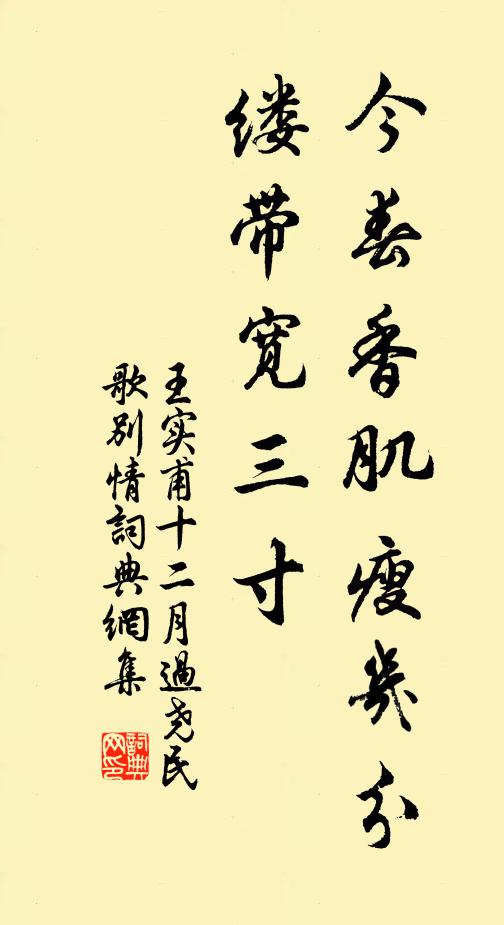 今春香肌瘦幾分
缕带宽三寸
王实甫十二月過尧民
歌别情詞典網集
詞典
网印